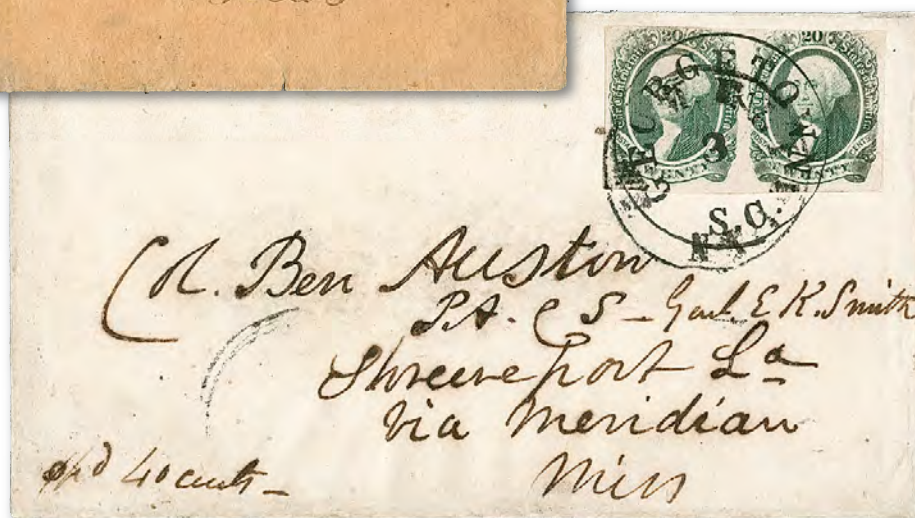 20 20
GEORGETOWN
3
S.C.
TWENTY TWENTY
Col. Ben Auston
P.A. C S - Genl. E K. Smith
Shreeveport La
via Meridian
Miss
pd 40 cents -